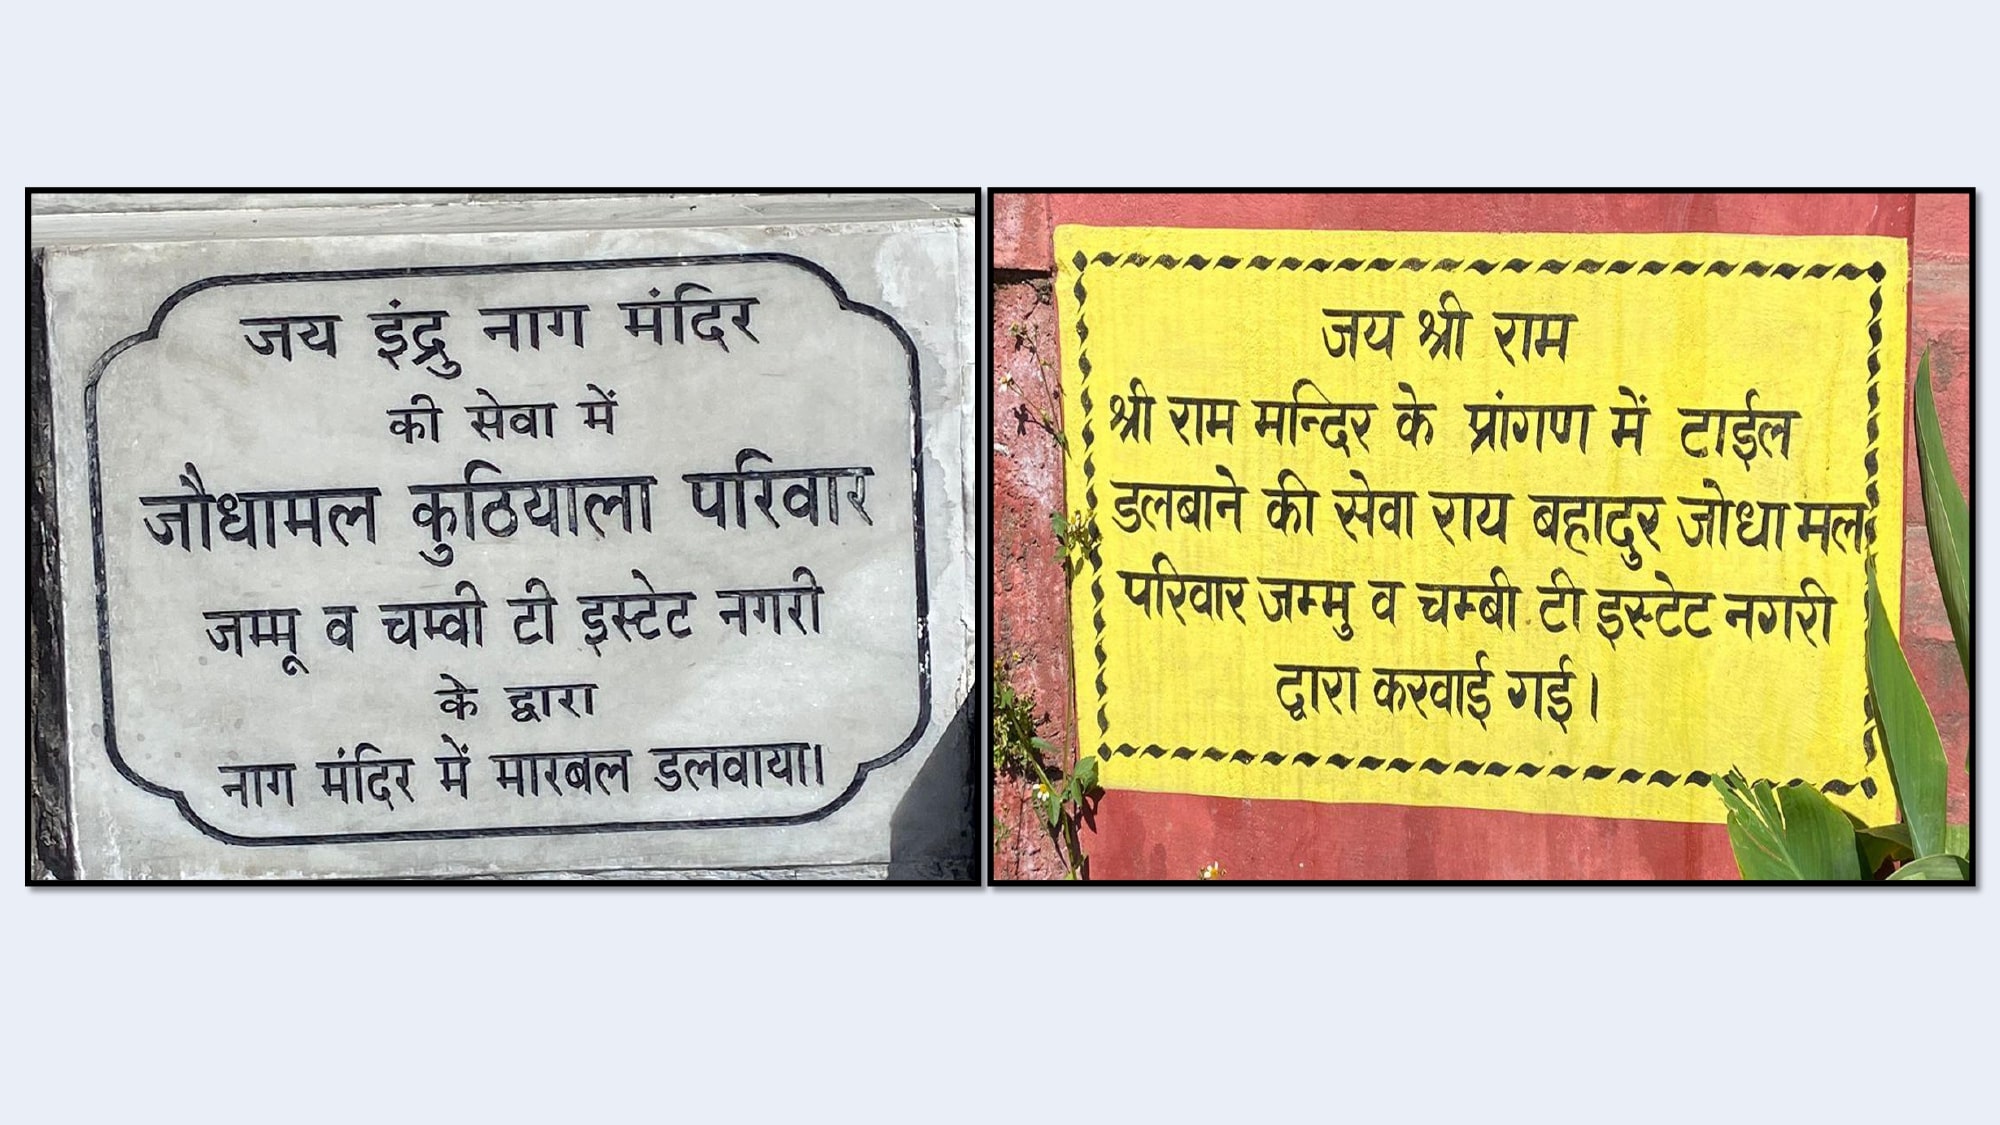 जय इंद्रु नाग मंदिर
की सेवा में
जौधामल कुठियाला परिवार
जम्मू व चम्वी टी इस्टेट नगरी
के द्वारा
नाग मंदिर में मारबल डलवाया।
जय श्री राम
श्री राम मन्दिर के प्रांगण में टाईल
डलबाने की सेवा राय बहादुर जोधा मल
परिवार जम्मु व चम्बी टी इस्टेट नगरी
द्वारा करवाई गई।